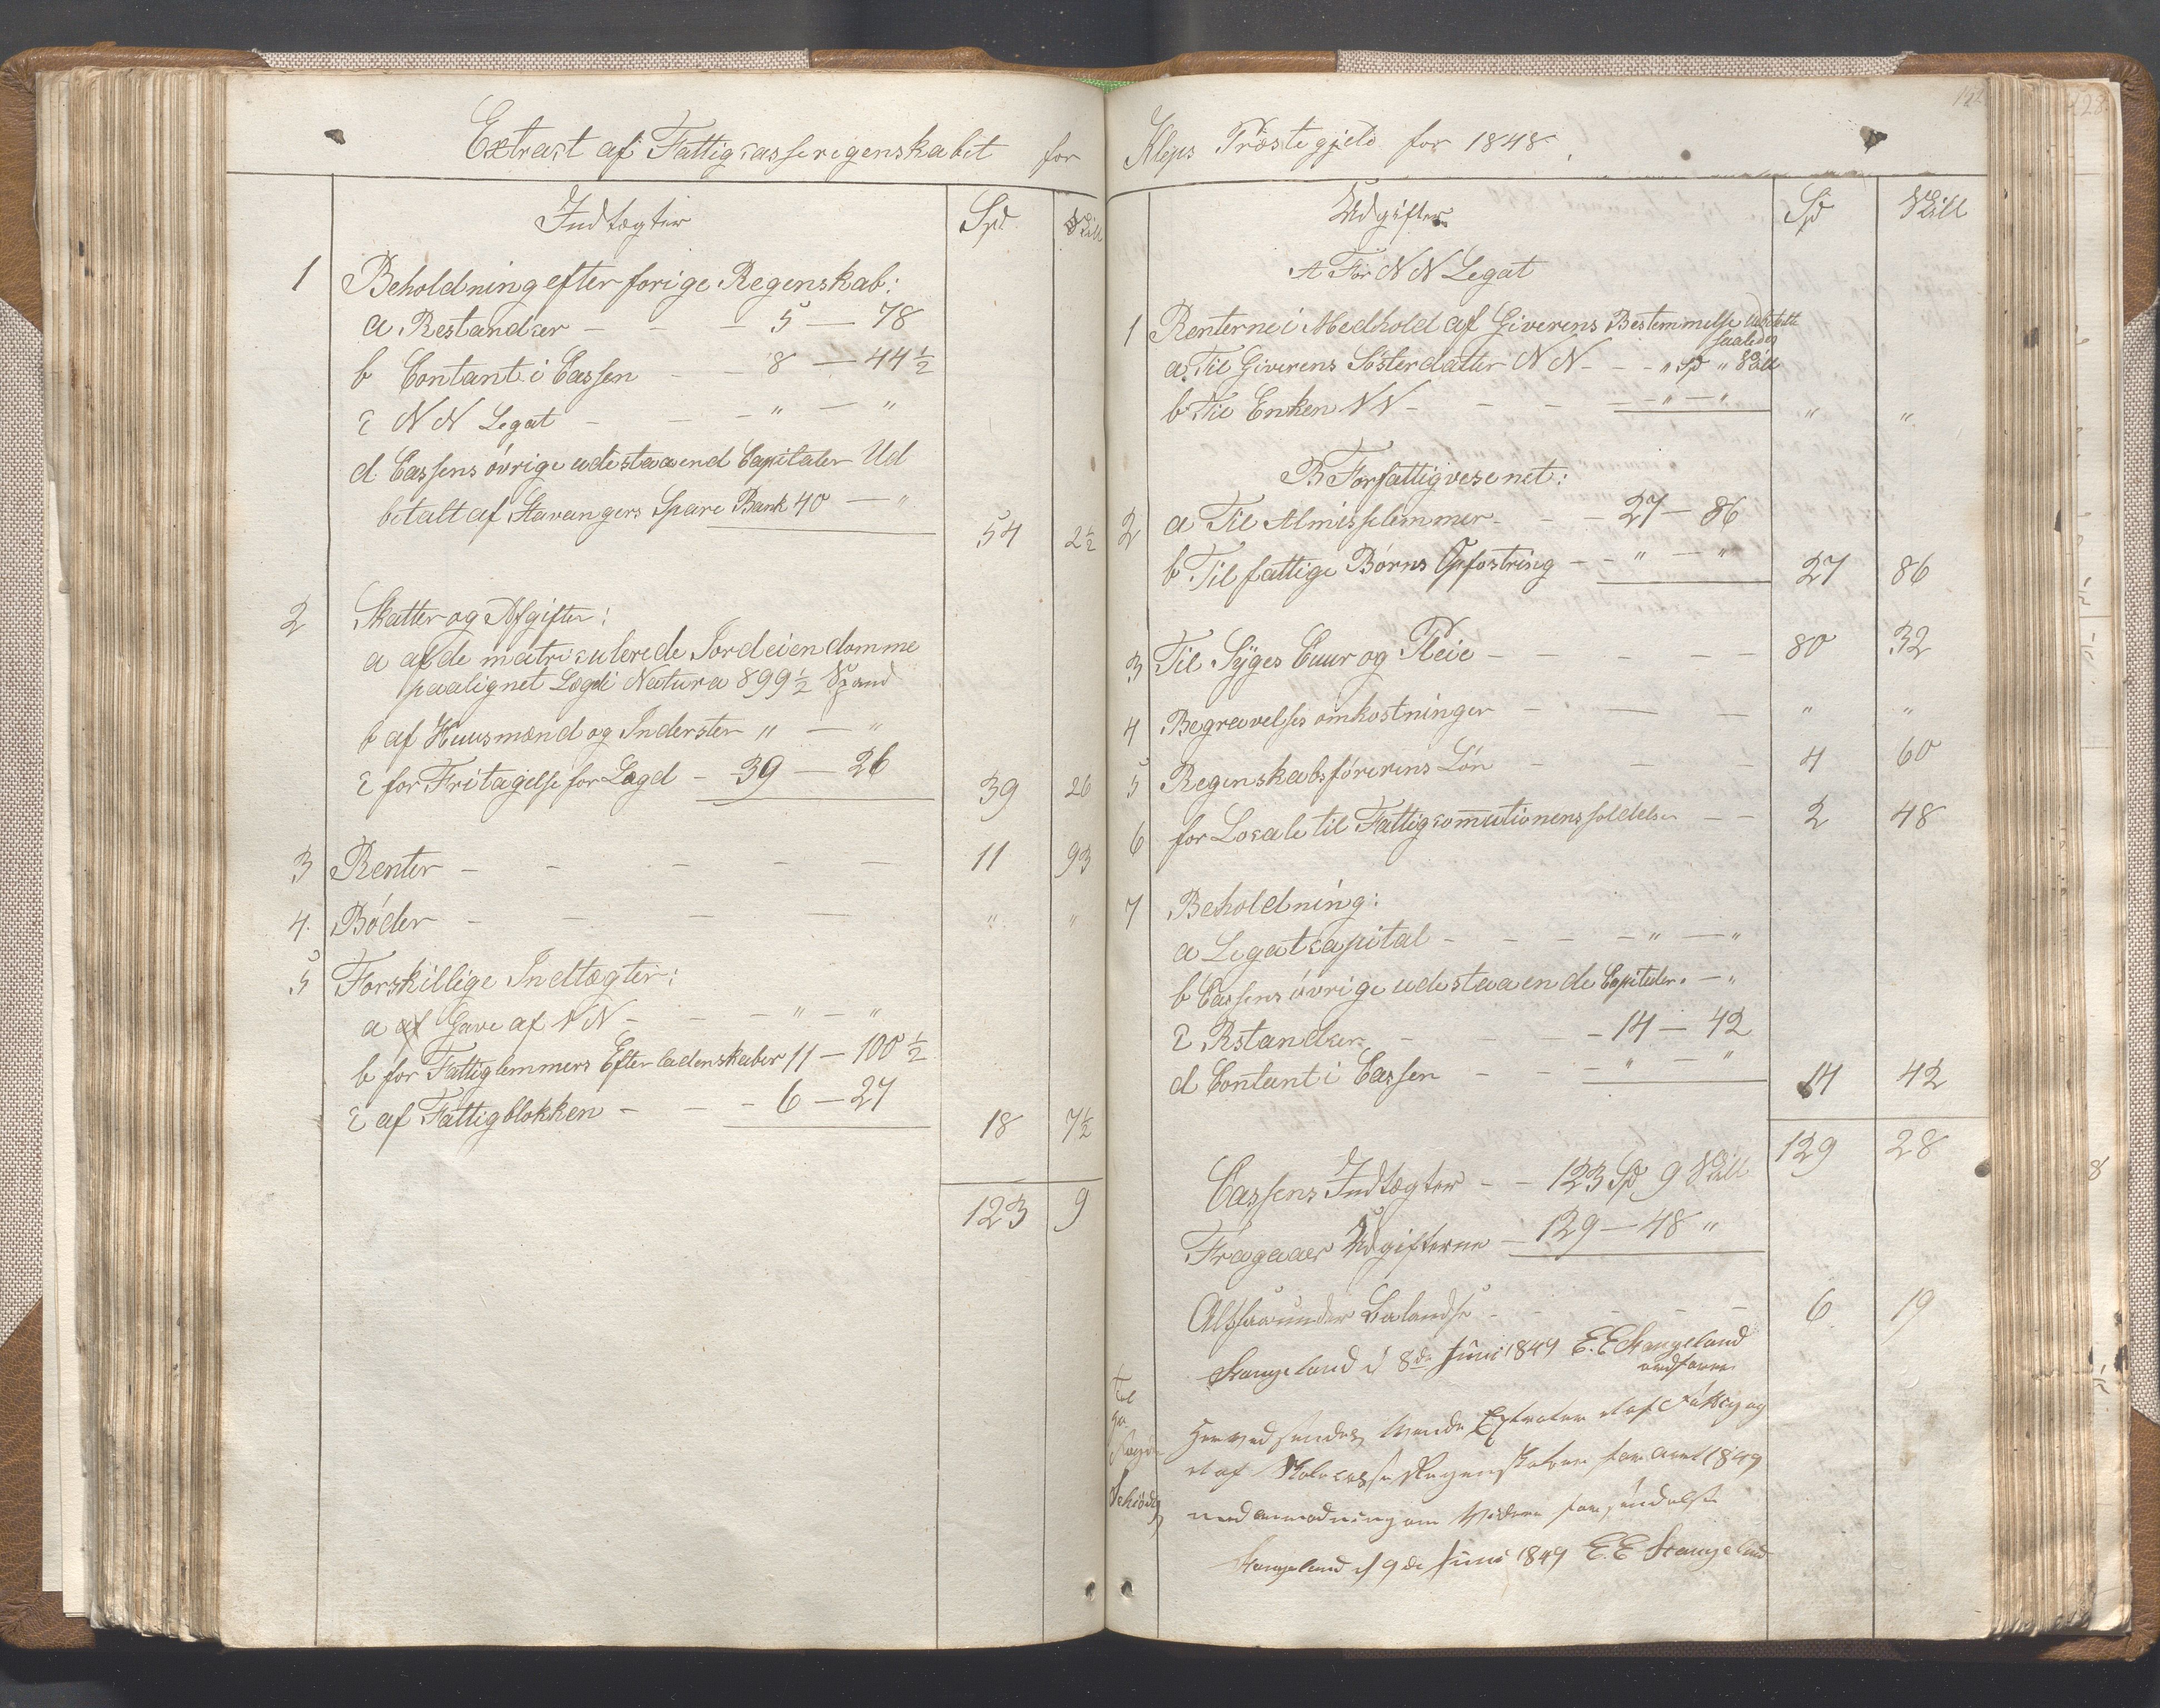 Extract af Fattigcasserigenskabet for
Indtægter Spd Skill
1 Beholdning efter forige Regenskab:
a Restandser - - - 5 - 78
b Contant i Cassen - - 8 - 44 1/2
c N N Legat - - - " - "
d. Cassens övrige udestaaend Capitaler Ud
betalt af Stavangers Spare Bank 40 - "
54 2 1/2
2 Skatter og Afgifter:
a af de matriculerede Jordeiendomme
paalignet Lægd i Natura 899 1/2 Spand
b af Huusmænd og Inderster " - "
c for Fritagelse for Lægd - 39 - 26
39 26
3 Renter - - - - - 11 93
4. Böder - - - - " "
5 Forskillige Indtægter:
a af Gave af N N - - - " - "
b for Fattiglemmers Efterladenskaber 11 - 100 1/2
c af Fattigblokken - - - 6 - 27
18 7 1/2
123 9
122
Kleps Præstegjeld for 1848.
Udgifter Spd Skill
A For N N Legat
1 Renterne i Medhold af Giverens Bestemmelse Udbetalt
saaledes
a. Til Giverens Sösterdatter N N - - - " Spd " Skill
b. Til Enken N N - - - - " - "
" "
B For fattigvesenet:
2 a Til Almisselemmer - - - 27 - 86
b Til fattige Börns Opfostring - - " - "
27 86
3 Til Syges Cuur og Pleie - - - - - 80 32
4 Begravelses omkostninger - - - " "
5 Regenskabsförerens Lön - - - 4 60
6 for Locale til Fattigcommitionens holdelse - - 2 48
7 Beholdning:
a Legatcapital - - - - " - "
b Cassens övrige udestaaende Capitaler. - "
c Rstandser - - - - 14 - 42
d Contant i Cassen - - - " - "
14 42
129 28
Cassens Indtægter - - 123 Spd 9 Skill
Fragaaer Udgifterne - 129 - 48 "
Altsaa under Balandse - - - - - 6 19
Stangeland d 8de Juni 1849 E. E Stangeland
ordförer
Til
Sogne
Schiödtz
Herved sendes tvende Extrakter et af Fattig og
et af Skolecasse Regenskaber for Aaret 1849
med anmodning om videre forsendelse
Stangeland d 9de Juni 1849 E. E Stangeland